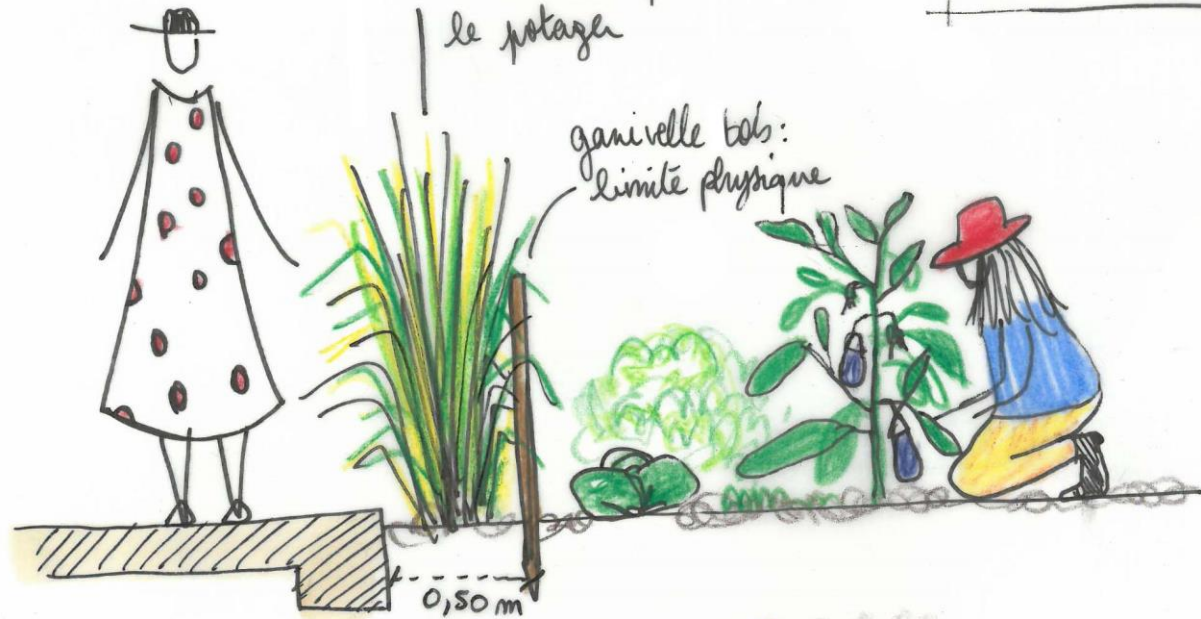 le potager
ganivelle bois:
limite physique
0,50 m